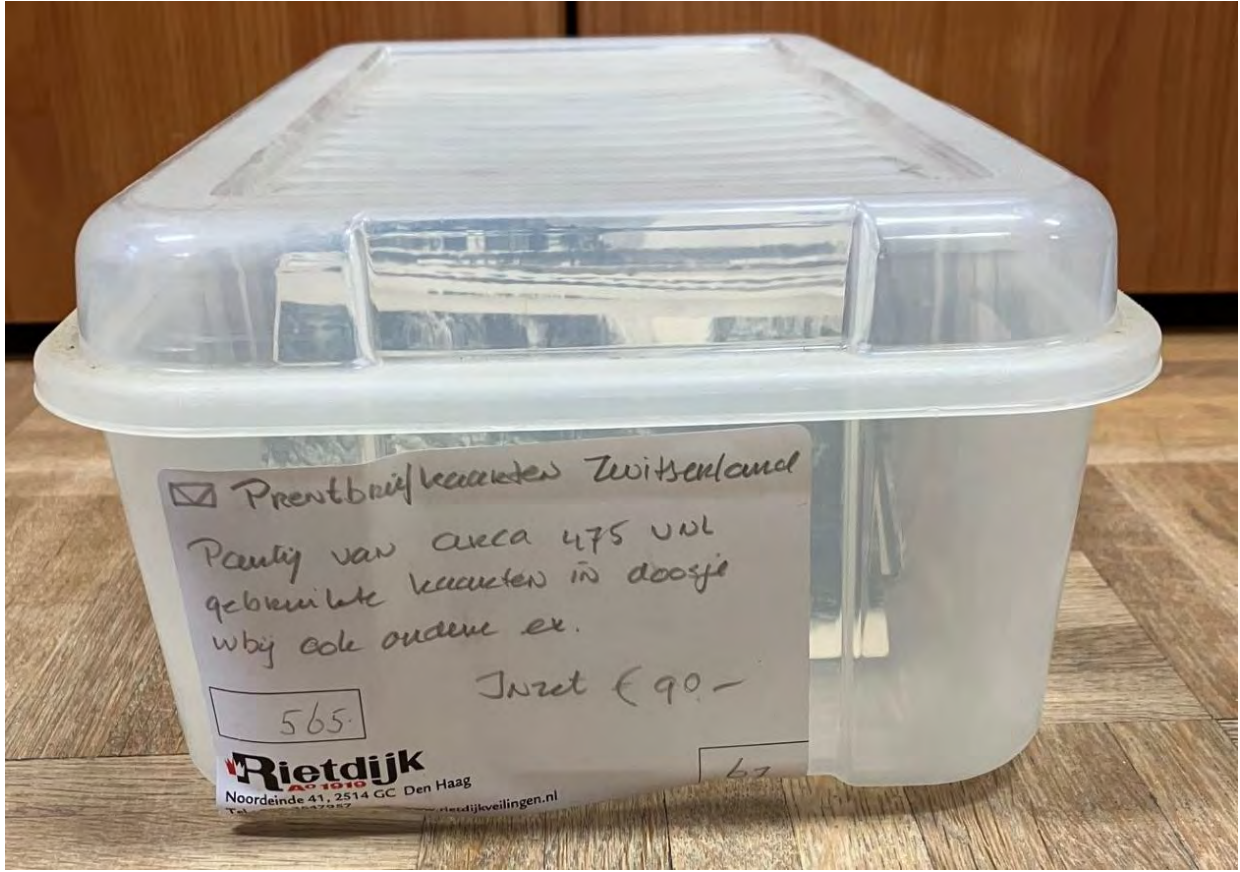 Prentbriefkaarten Zwitserland
Partij van circa 475 vnl
gebruikte kaarten in doosje
wbij ook oudere ex.
Inzet € 90.-
565.
Rietdijk
Aº 1919
Noordeinde 41, 2514 GC Den Haag
www.rietdijkveilingen.nl